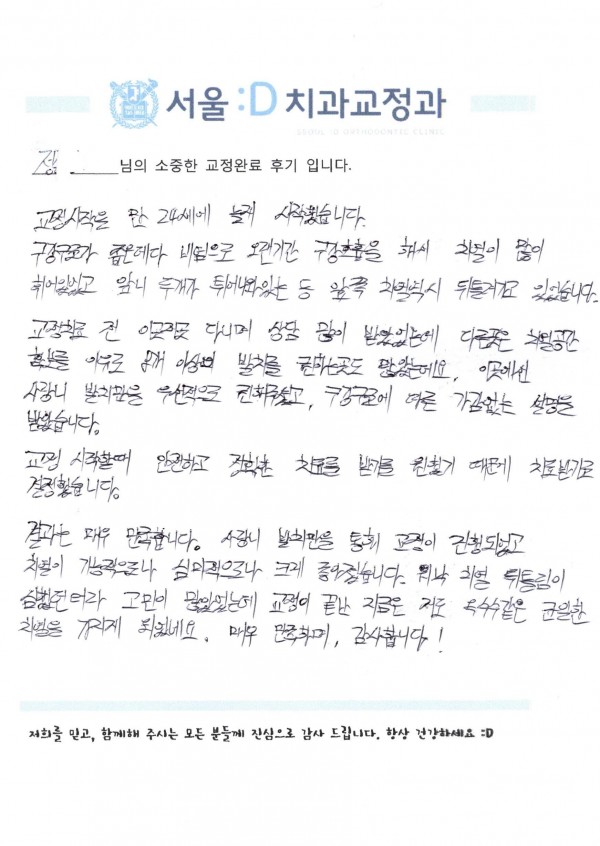 서울 :D 치과교정과
SEOUL :D ORTHODONTIC CLINIC
정 님의 소중한 교정완료 후기 입니다.
교정시작은 만 24세에 늦게 시작했습니다.
구강구조가 좁은데다 비염으로 오랜기간 구강호흡을 해서 치열이 많이
휘어있었고 앞니 두개가 튀어나와있는 등 앞쪽 치열역시 뒤틀려가고 있었습니다.
교정치료 전 이곳저곳 다니며 상담 많이 받았었는데 다른곳은 치열공간
확보를 이유로 4개 이상의 발치를 권하는곳도 많았는데요, 이곳에선
사랑니 발치만을 우선적으로 권해주셨고, 구강구조에 따른 가감없는 설명을
받았습니다.
교정 시작할때 안전하고 정확한 치료를 받기를 원했기 때문에 치료받기로
결정했습니다.
결과는 매우 만족합니다. 사랑니 발치만을 통해 교정이 진행되었고
치열이 기능적으로나 심미적으로나 크게 좋아졌습니다. 워낙 치열 뒤틀림이
심했던터라 고민이 많았었는데 교정이 끝난 지금은 저도 옥수수같은 균일한
치열을 가지게 되었네요. 매우 만족하며, 감사합니다!
저희를 믿고, 함께해 주시는 모든 분들께 진심으로 감사 드립니다. 항상 건강하세요 :D